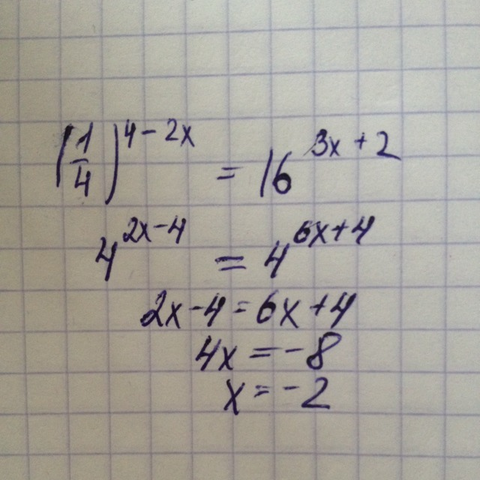 (1/4)^{4-2x} = 16^{3x+2}
4^{2x-4} = 4^{6x+4}
2x-4=6x+4
4x=-8
x=-2